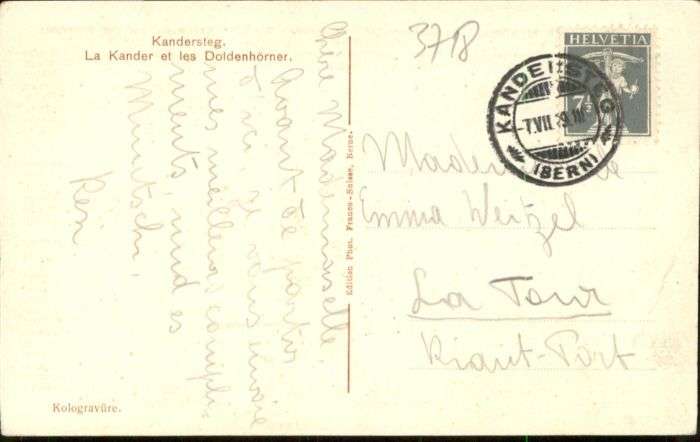 Kandersteg.
La Kander et les Doldenhörner.
Chère Mademoiselle
Avant de partir
d'ici je vous envoie
mes meilleurs compli-
ments, und es
Müntschi,
Edition Phot. Franco-Suisse, Berne.
Kologravüre.
37B
HELVETIA
7½
KANDERSTEG
7.VII.29.III
(BERN)
Mademoiselle
Emma Weitzel
La Tour
Riant-Port